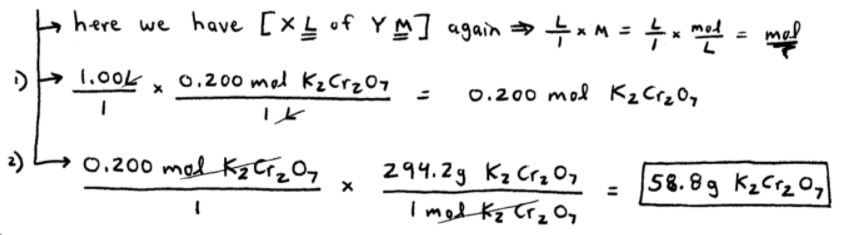 ↳ here we have [X L of Y M] again ⇒ L/1 × M = L/1 × mol/L = mol
1) → 1.00L/1 × 0.200 mol K₂Cr₂O₇/1 L = 0.200 mol K₂Cr₂O₇
2) → 0.200 mol K₂Cr₂O₇/1 × 294.2g K₂Cr₂O₇/1 mol K₂Cr₂O₇ = 58.8g K₂Cr₂O₇